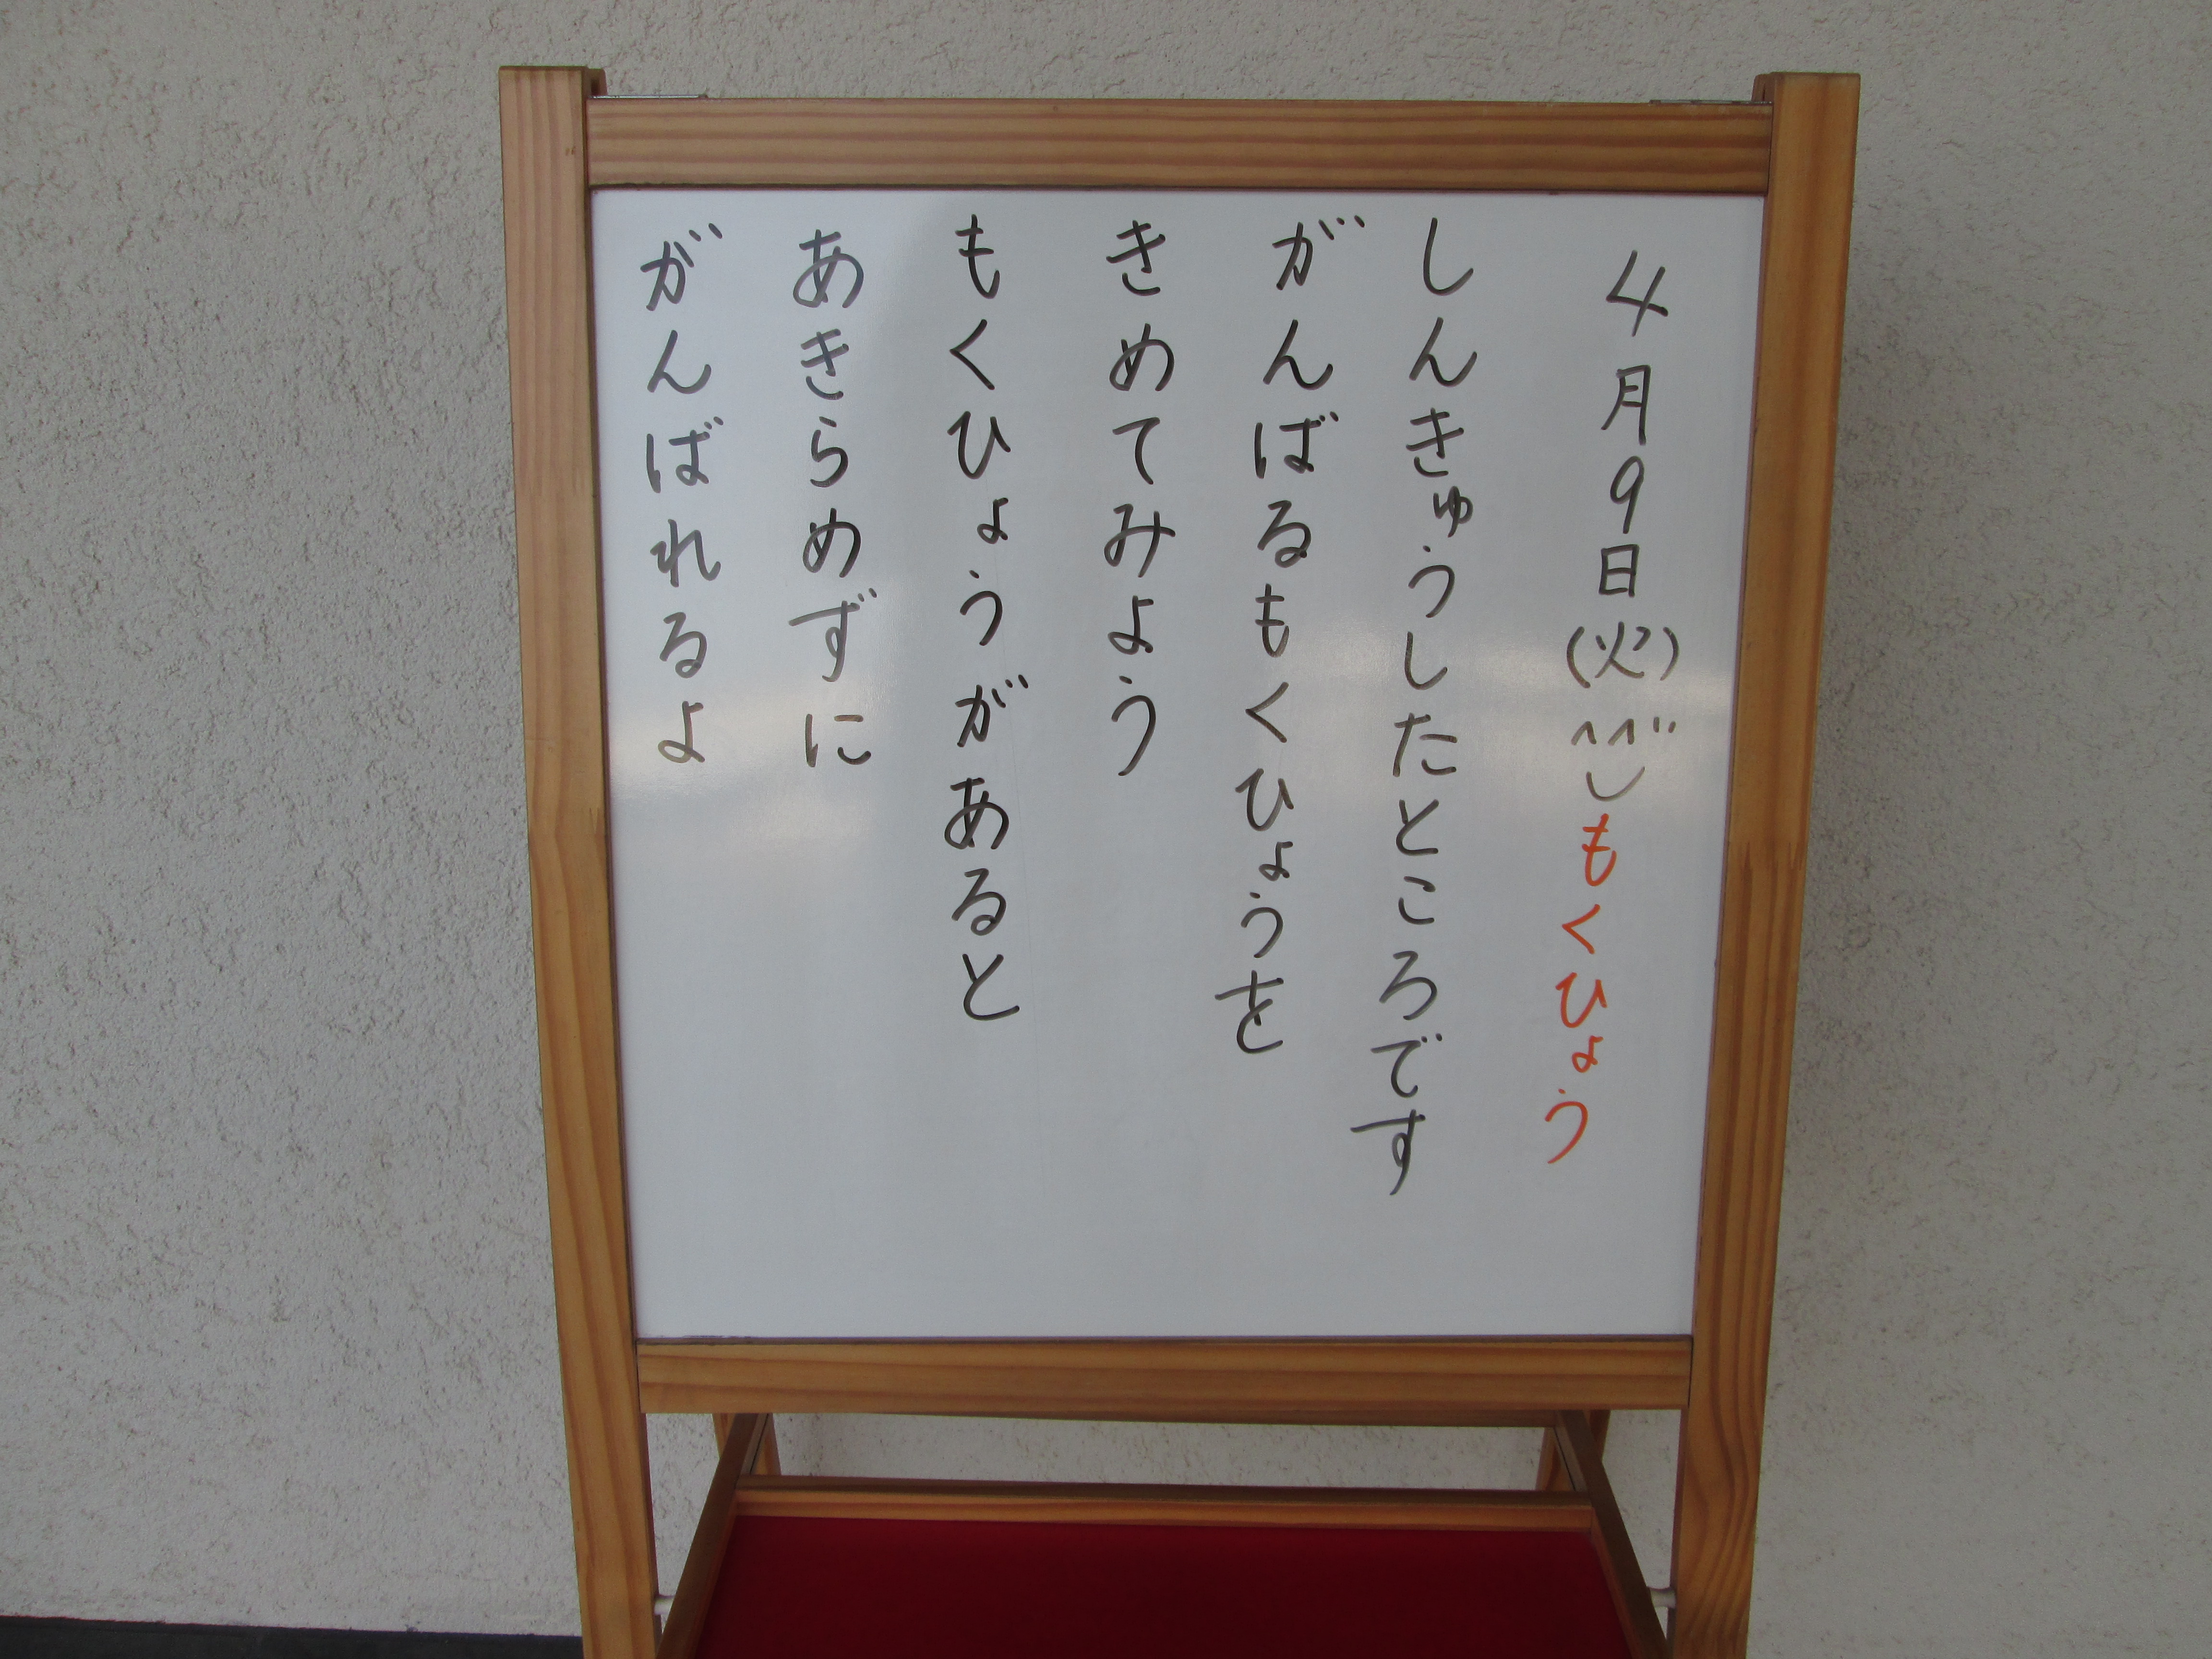 4月9日(火)もくひょう
しんきゅうしたところです
がんばるもくひょうを
きめてみよう
もくひょうがあると
あきらめずに
がんばれるよ